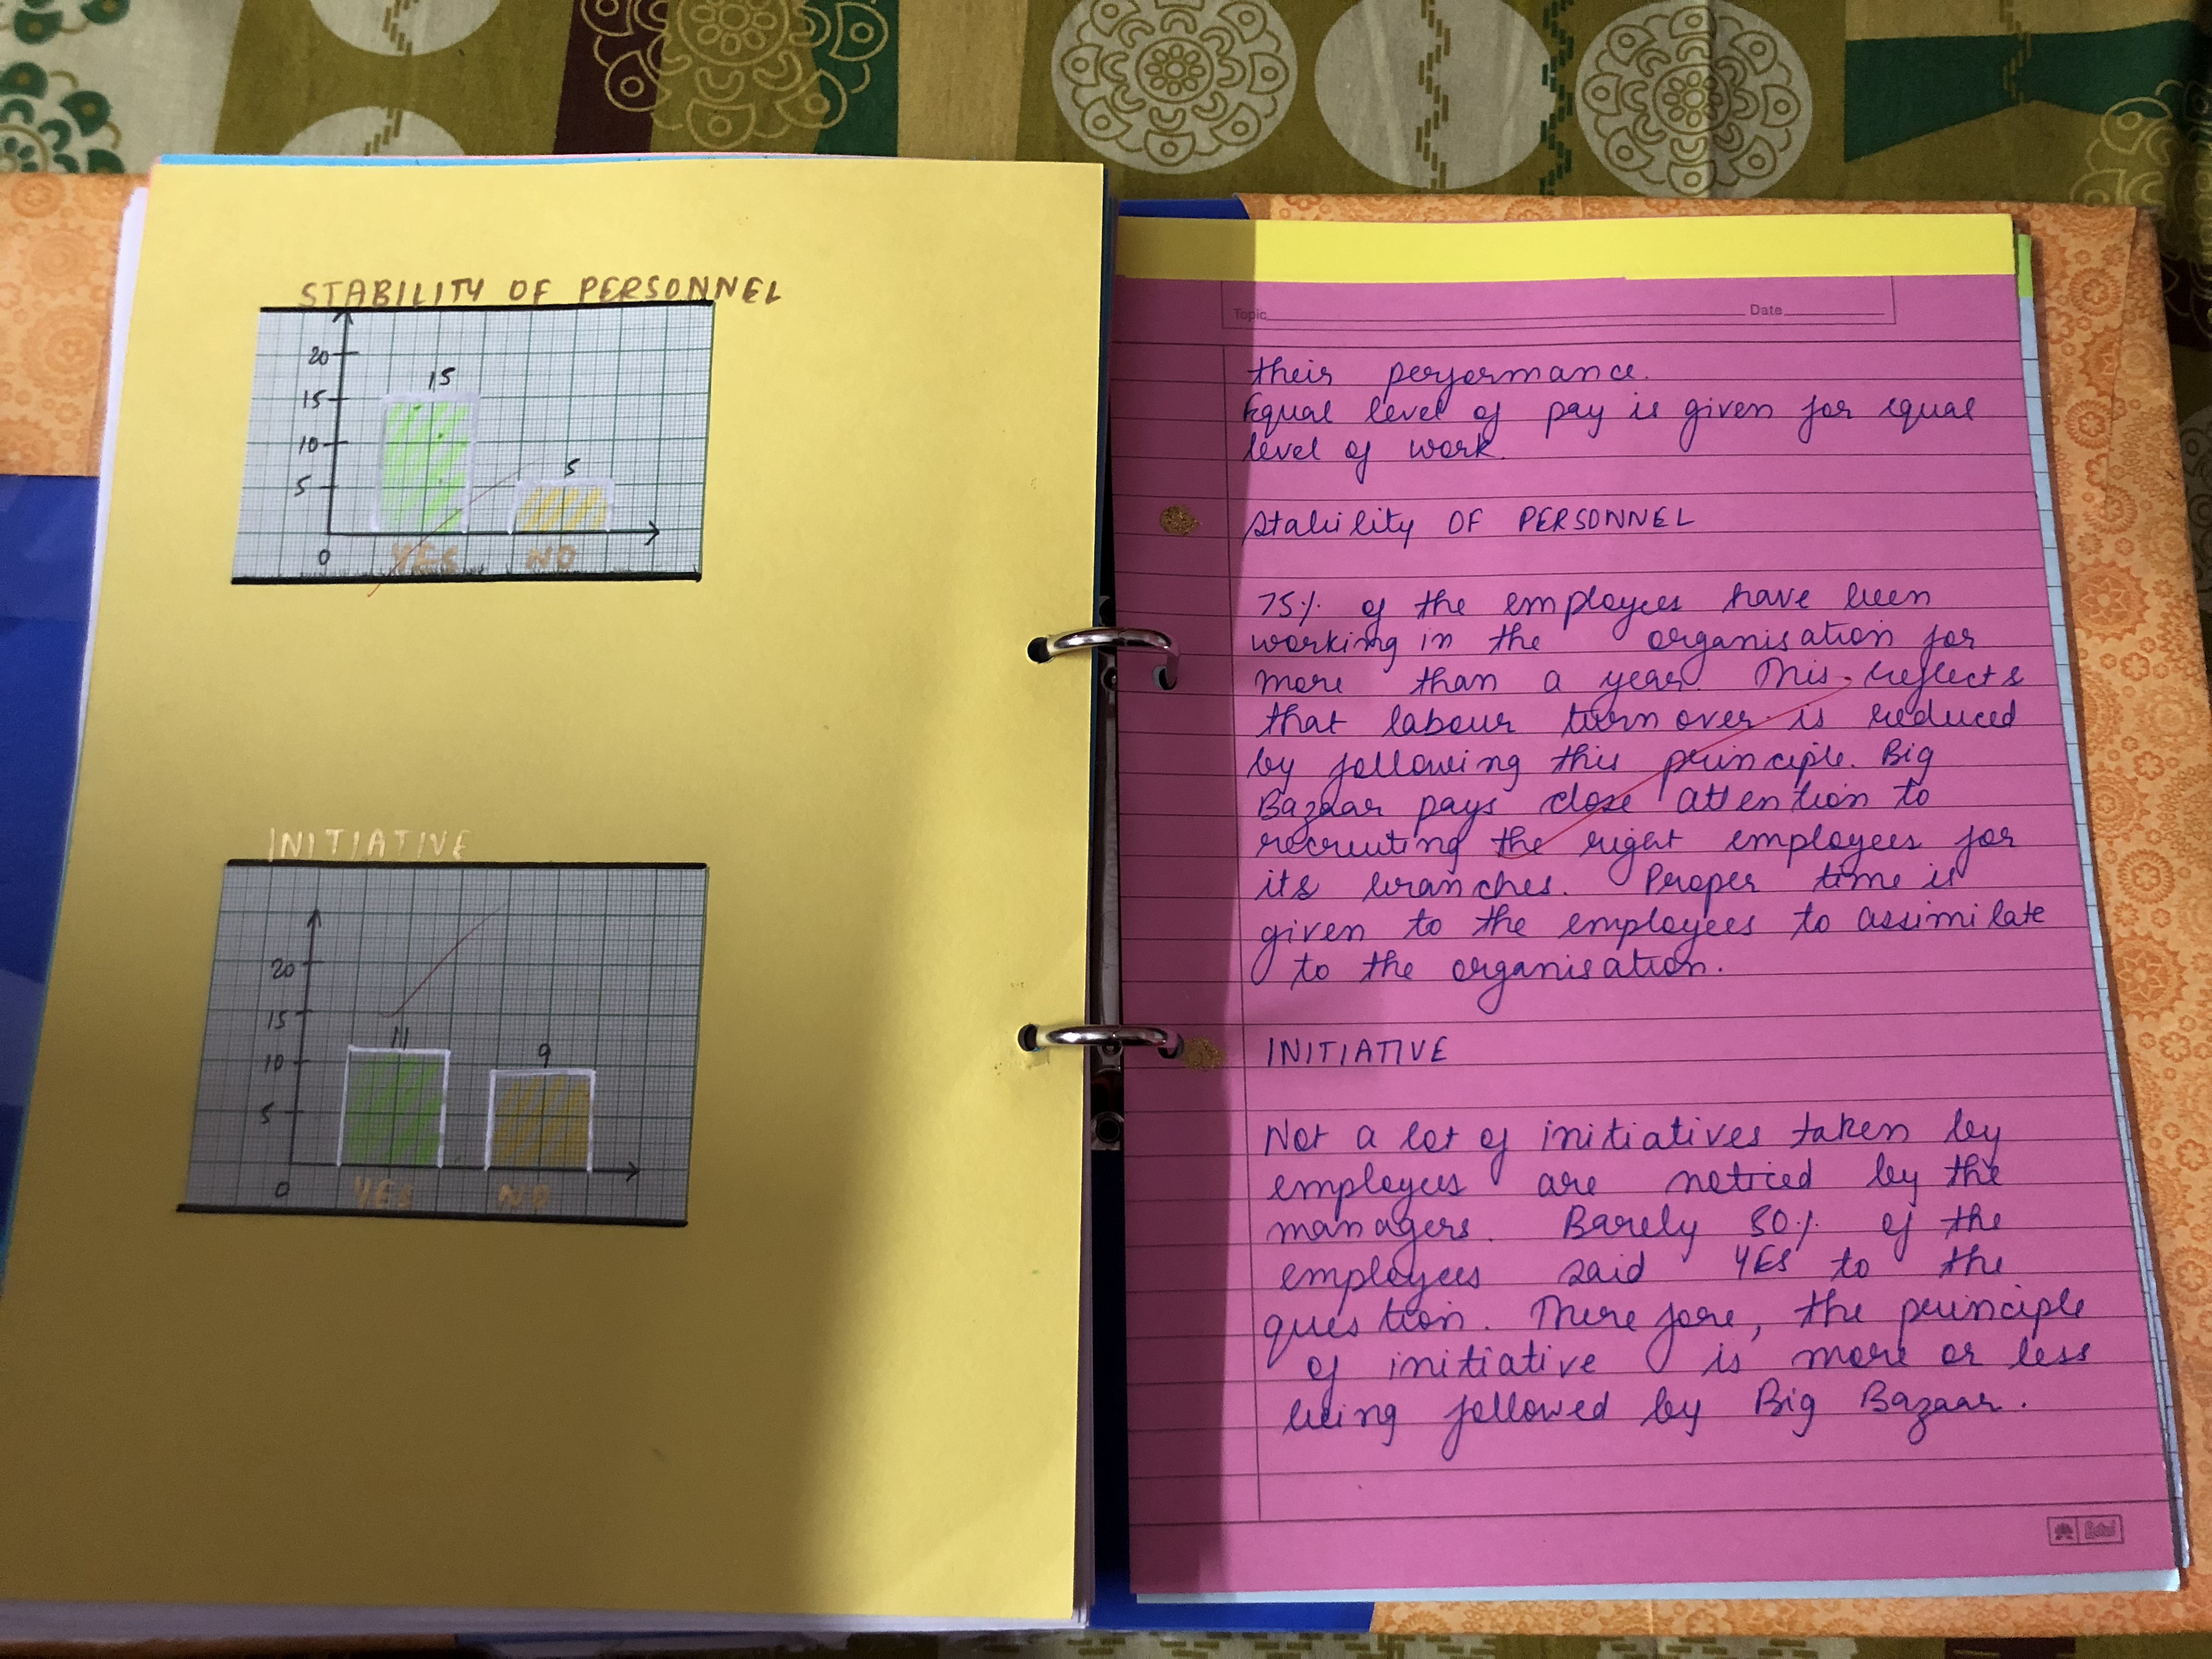 STABILITY OF PERSONNEL
20
15
15
10
5
5
0
YES NO
INITIATIVE
20
15
11
10
9
5
0
YES NO
Topic Date
their performance.
Equal level of pay is given for equal
level of work.
Stability OF PERSONNEL
75% of the employees have been
working in the organisation for
more than a year. This reflects
that labour turnover is reduced
by following this principle. Big
Bazaar pays close attention to
recruiting the right employees for
its branches. Proper time is
given to the employees to assimilate
to the organisation.
INITIATIVE
Not a lot of initiatives taken by
employees are noticed by the
managers. Barely 50% of the
employees said YES to the
question. Therefore, the principle
of initiative is more or less
being followed by Big Bazaar.